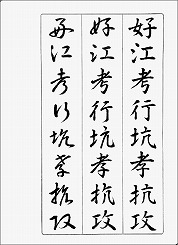 好江考行坑孝抗攻
好江考行坑孝抗攻
好江考行坑孝抗攻